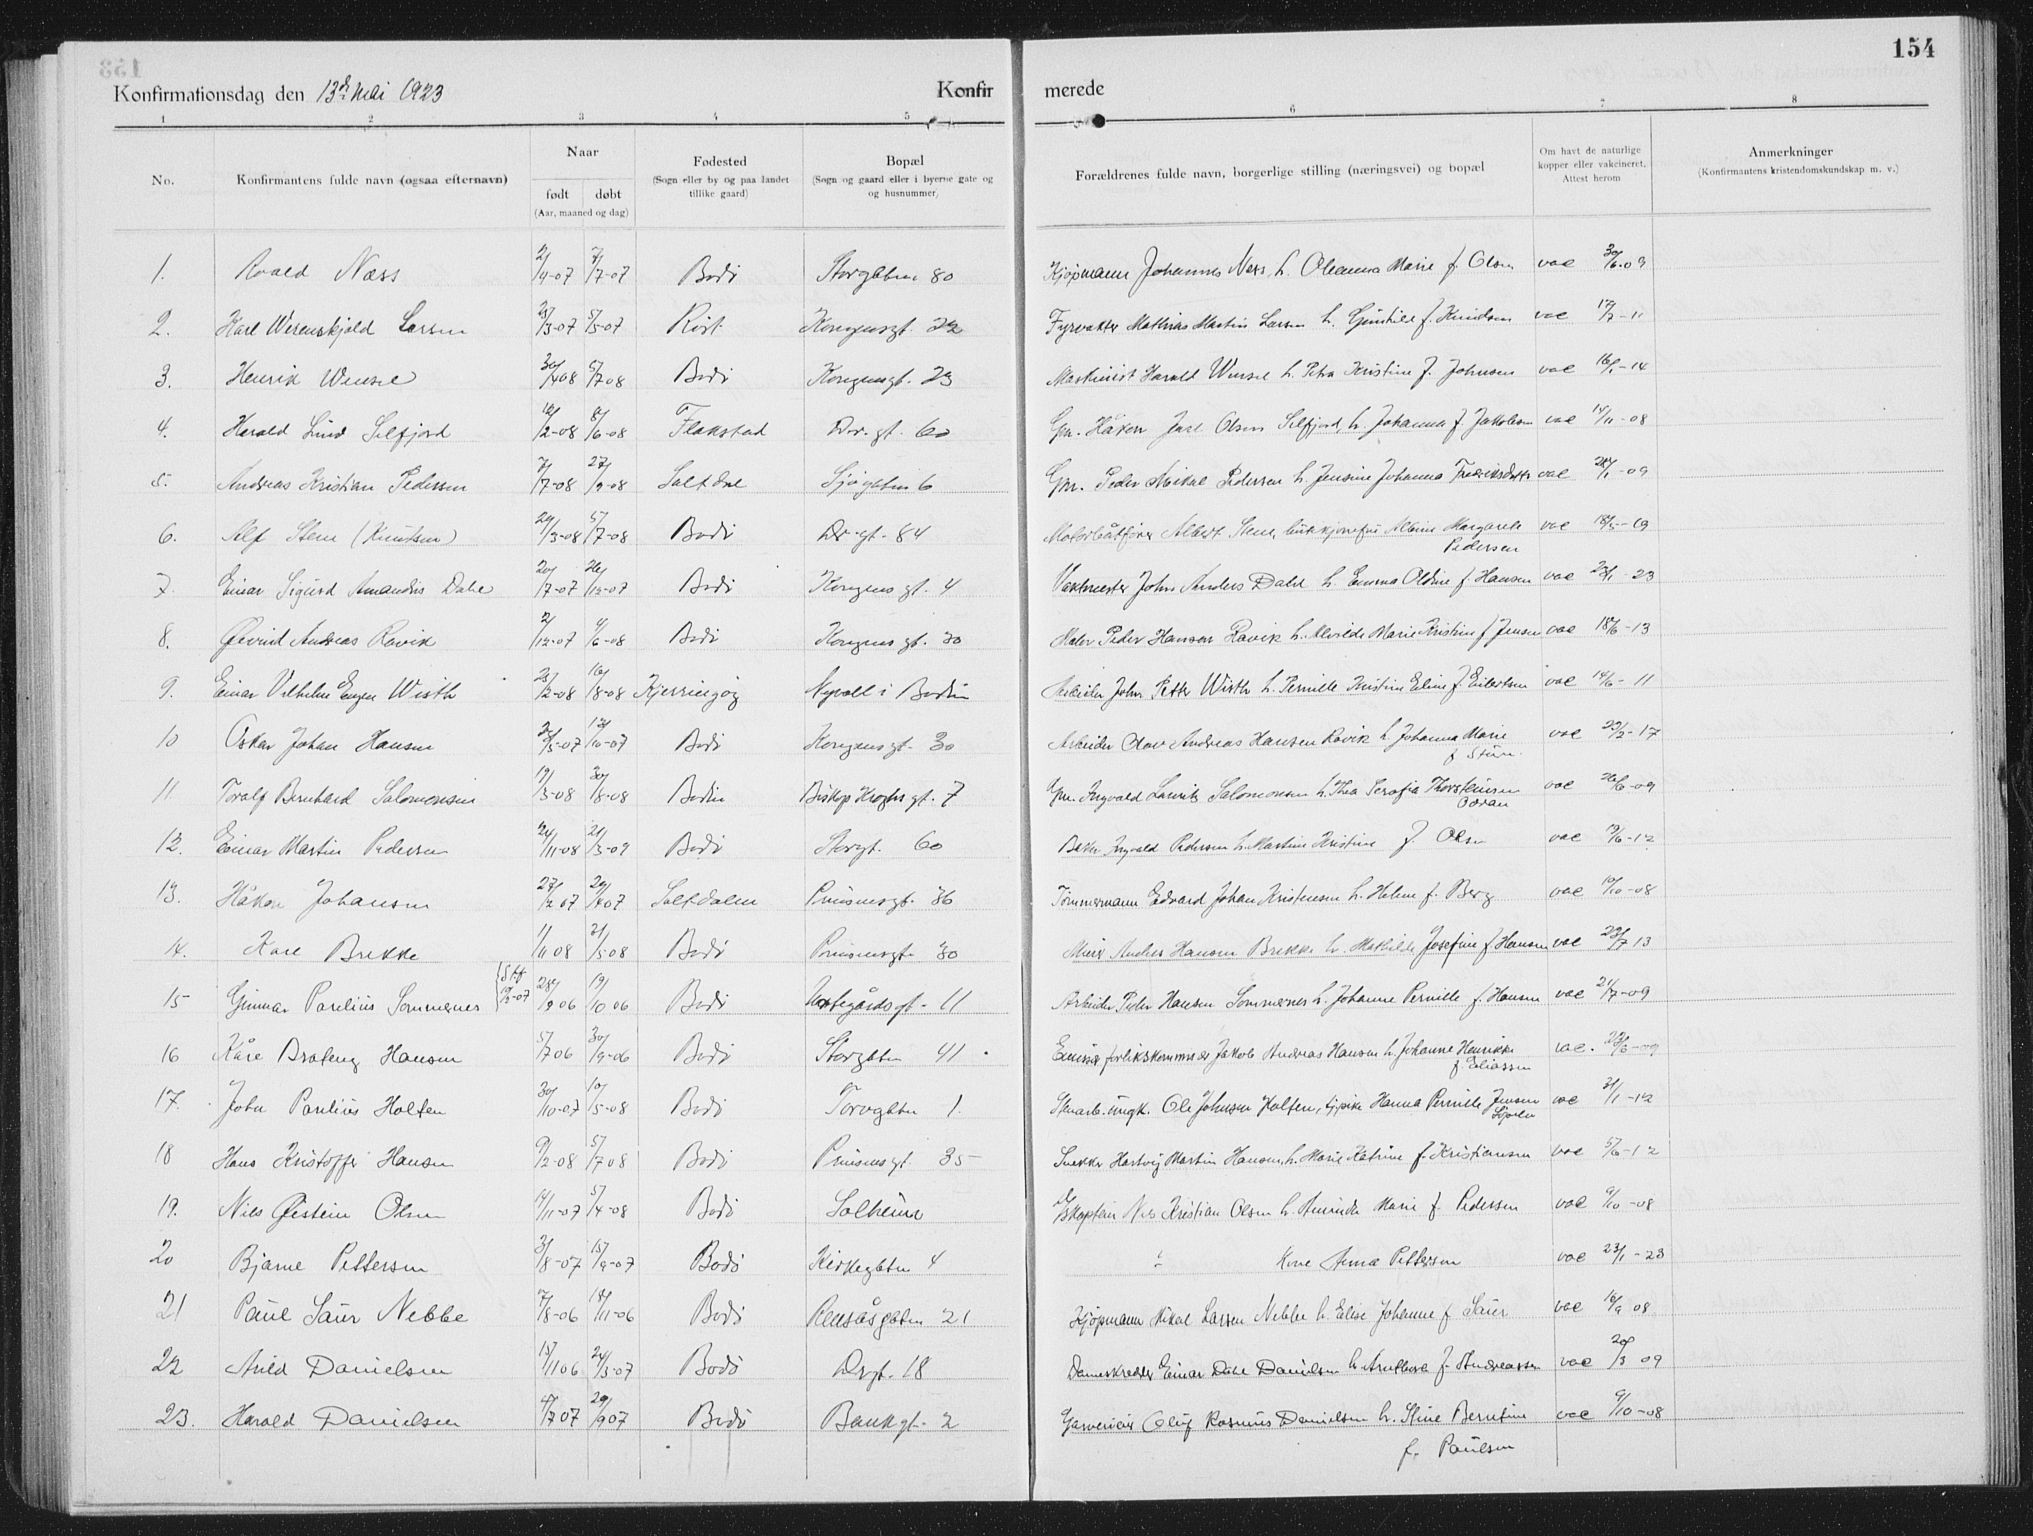 154
Konfirmationsdag den 13de Mai 1923 Konfir merede
1 2 3 4 5 6 7 8
No. Konfirmantens fulde navn (ogsaa efternavn) Naar født døbt (Aar, maaned og dag) Fødested (Sogn eller by og paa landet tillike gaard) Bopæl (Sogn og gaard eller i byerne gate og og husnummer) Forældrenes fulde navn, borgerlige stilling (næringsvei) og bopæl Om havt de naturlige kopper eller vakcineret. Attest herom. Anmerkninger (Konfirmantens kristendomskundskap m. v.)
1. Roald Næss 2/4-07 7/7-07 Bodø Storgaten 80 Kjøpmann Johannes Næss, h. Oleanna Marie f. Olsen vac 30/6-09
2. Karl Werenskjold Larsen 23/3-07 5/5-07 Røst Kongensgt. 22 Fyrvokter Mathias Martin Larsen h. Gunhild f. Knudsen vac 17/7-11
3. Henrik Wensel 30/4 08 5/7 08 Bodø Kongensgt. 23 Maskinist Harald Wensel h. Petra Kristine f. Johnsen vac 16/5-14
4. Harald Lind Selfjord 10/2-08 8/6-08 Flakstad Dr. gt. 60 Gm. Håkon Jarl Olsen Selfjord, h. Johanna f. Jakobsen vac 14/11-08
5. Andreas Kristian Pedersen 7/7-08 27/9-08 Saltdal Sjøgaten 6 Gm. Peder Mikal Pedersen h. Jensine Johanna Fredriksdatter vac 28/1-09
6. Alf Stene (Knutsen) 29/3-08 5/7-08 Bodø Dr. gt. 84 Motorbåtfører Albert Stene, Albine Margarete Pedersen vac 18/5-19
7. Einar Sigurd Amandus Dahl 20/7-07 26/12-07 Bodø Kongens gt. 4 Vaktmester John Anders Dahl h. Emma Oldine f. Hansen vac 23/1-23
8. Øivind Andreas Ravik 2/12-07 4/6-08 Bodø Kongens gt. 30 Maler Peder Hansen Ravik h. Alvilde Marie Kristine f. Jensen vac 18/6-13
9. Einar Vilhelm Eugen Wisth 23/2-08 16/8-08 Kjerringøy Nyvoll i Bodin Arbeider John Petter Wisth h. Pernille Kristine Eline f. Eilertsen vac 14/6-11
10 Oskar Johan Hansen 22/5-07 13/10-07 Bodø Kongensgt. 30 Arbeider Olav Andreas Hansen Ravik h. Johanna Marie f. Stene vac 22/2-17
11 Toralf Bernhard Salomonsen 19/3-08 30/8-08 Bodin Biskop Kroghs gt. 7 Gm. Ingvald Lauritz Salomonsen h. Thea Serafia Thorsteinsen vac 26/6-09
12. Einar Martin Pedersen 24/11-08 21/3-09 Bodø Storgt. 60 Baker Ingvald Pedersen h. Martine Kristine f. Olsen vac 19/6-12
13. Håkon Johansen 27/2 07 29/4 07 Saltdalen Prinsensgt. 86 Tømmermann Edvard Johan Kristensen h. Helene f. Berg vac 10/10-08
14. Kåre Brekke 1/1 08 31/5 08 Bodø Prinsensgt. 30 Murer Anders Hansen Brekke h. Mathilde Josefine f. Hansen vac 23/7 13
15 Gunnar Parelius Sommernes 28/9 06 19/10 06 Bodø Hartegårdsgt. 11 Arbeider Peder Hansen Sommernes h. Johanne Pernille f. Hansen vac 21/7-09
16 Kåre Brateng Hansen 5/7 06 30/9-06 Bodø Storgaten 41. forlikskommissær Jakob Andreas Hansen h. Johanne Henrikke f. Eliassen vac. 22/6-09
17. John Parelius Holten 30/10-07 10/5-08 Bodø Torvgaten 1. Stenarb. ungk. Ole Johnsen Holten, h pike Hanna Pernille Jensen vac 31/1-12
18 Hans Kristoffer Hansen 9/2-08 5/7 08 Bodø Prinsensgt 35 Snekker Hartvig Martin Hansen, h. Marie Katrine f. Kristiansen vac 5/6-12
19. Nils Øistein Olsen 14/11-07 5/4-08 Bodø Solheim D/Skaptein Nils Kristian Olsen h. Aminda Marie f. Pedersen vac 9/10-08
20 Bjarne Pettersen 31/8-07 15/9-07 Bodø Kirkegaten 4 Kone Anna Pettersen vac 23/1-23
21 Paul Saur Nebbe 7/8-06 18/11-06 Bodø Rensåsgaten 21 Kjøpmann Mikal Larsen Nebbe h. Elise Johanne f. Saur vac 16/9 08
22 Arild Danielsen 15/11 06 24/3-07 Bodø Drgt. 18 Dameskredder Einar Dahl Danielsen h. f. Andreassen vac 20/3 09
23. Harald Danielsen 4/7 07 29/9 07 Bodø Bankgt. 2 Garveriarb. Oluf Rasmus Danielsen h. Stine Berntine f. Paulsen vac 9/10-08